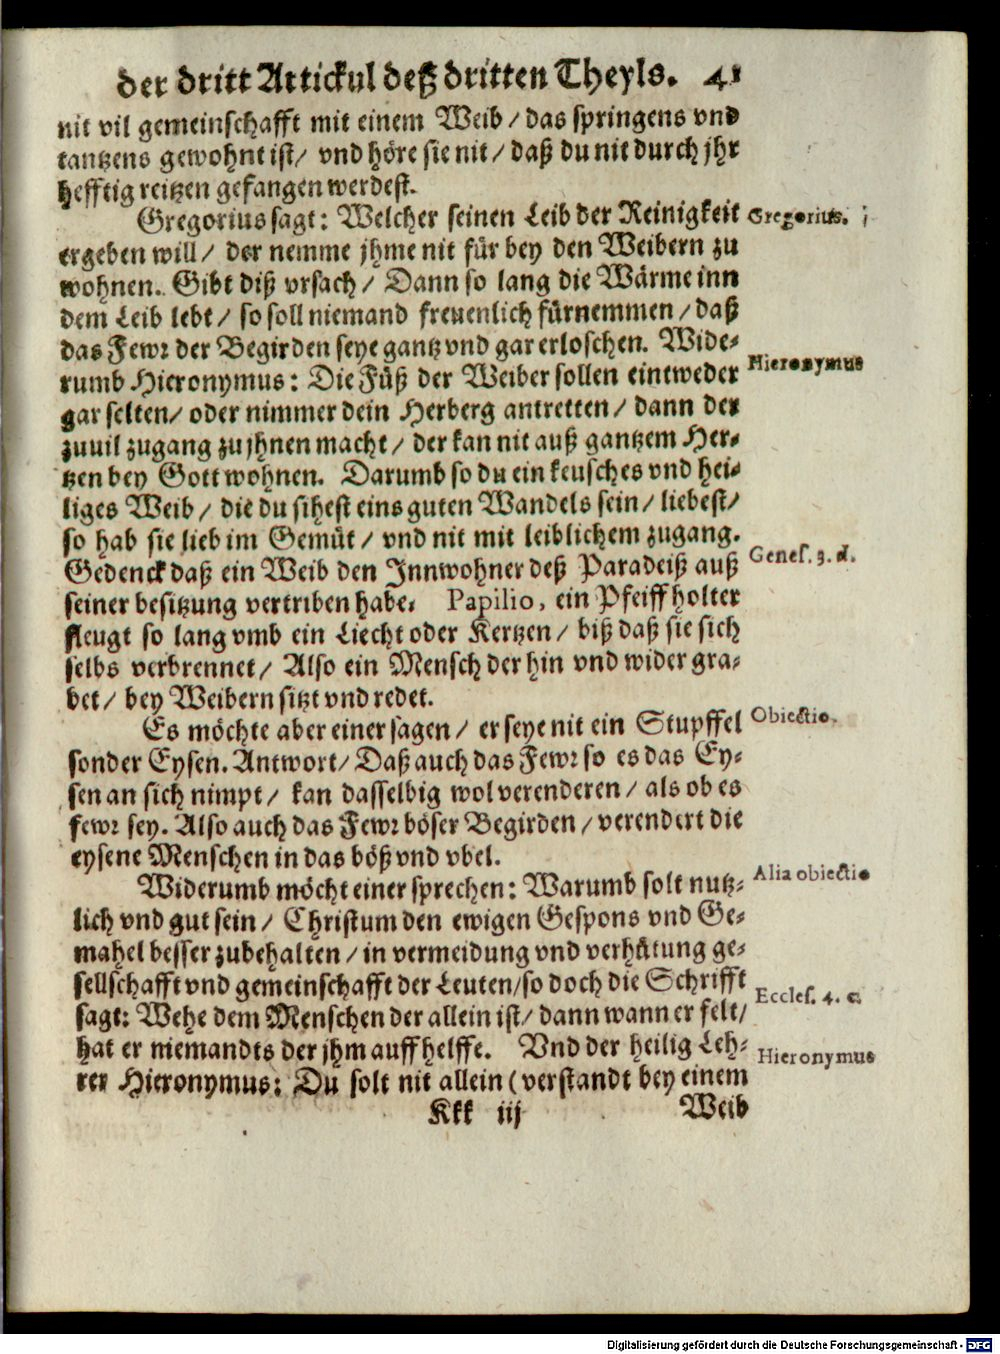 der dritt Artickul deß dritten Theyls. 41
nit vil gemeinschafft mit einem Weib / das springens vnd
tantzens gewohnt ist / vnd höre sie nit / daß du nit durch jhr
hefftig reitzen gefangen werdest.
Gregorius sagt: Welcher seinen Leib der Reinigkeit Gregorius.
ergeben will / der nemme jhme nit für bey den Weibern zu
wohnen. Gibt diß vrsach / Dann so lang die Wärme inn
dem Leib lebt / so soll niemand freuenlich fürnemmen / daß
das Fewr der Begirden seye gantz vnd gar erloschen. Wide-
rumb Hieronymus: Die Füß der Weiber sollen eintweder Hieronymus
gar selten / oder nimmer dein Herberg antretten / dann der
zuuil zugang zu jhnen macht / der kan nit auß gantzem Her-
tzen bey Gott wohnen. Darumb so du ein keusches vnd hei-
liges Weib / die du sihest eins guten Wandels sein / liebest /
so hab sie lieb im Gemüt / vnd nit mit leiblichem zugang.
Gedenck daß ein Weib den Innwohner deß Paradeiß auß Genes. 3. d.
seiner besitzung vertriben habe. Papilio, ein Pfeiffholter
fleugt so lang vmb ein Liecht oder Kertzen / biß daß sie sich
selbs verbrennet / Also ein Mensch der hin vnd wider gra-
bet / bey Weibern sitzt vnd redet.
Es möchte aber einer sagen / er seye nit ein Stupffel Obiectio.
sonder Eysen. Antwort / Daß auch das Fewr so es das Ey-
sen an sich nimpt / kan dasselbig wol verenderen / als ob es
fewr sey. Also auch das Fewr böser Begirden / verendert die
eysene Menschen in das böß vnd vbel.
Widerumb möcht einer sprechen: Warumb solt nutz- Alia obiectio
lich vnd gut sein / Christum den ewigen Gespons vnd Ge-
mahel besser zubehalten / in vermeidung vnd verhütung ge-
sellschafft vnd gemeinschafft der Leuten / so doch die Schrifft
sagt: Wehe dem Menschen der allein ist / dann wann er felt / Eccles. 4. c.
hat er niemandts der jhm auff helffe. Vnd der heilig Leh-
rer Hieronymus: Du solt nit allein (verstandt bey einem Hieronymus
Kkk iij Weib
Digitalisierung gefördert durch die Deutsche Forschungsgemeinschaft - DFG